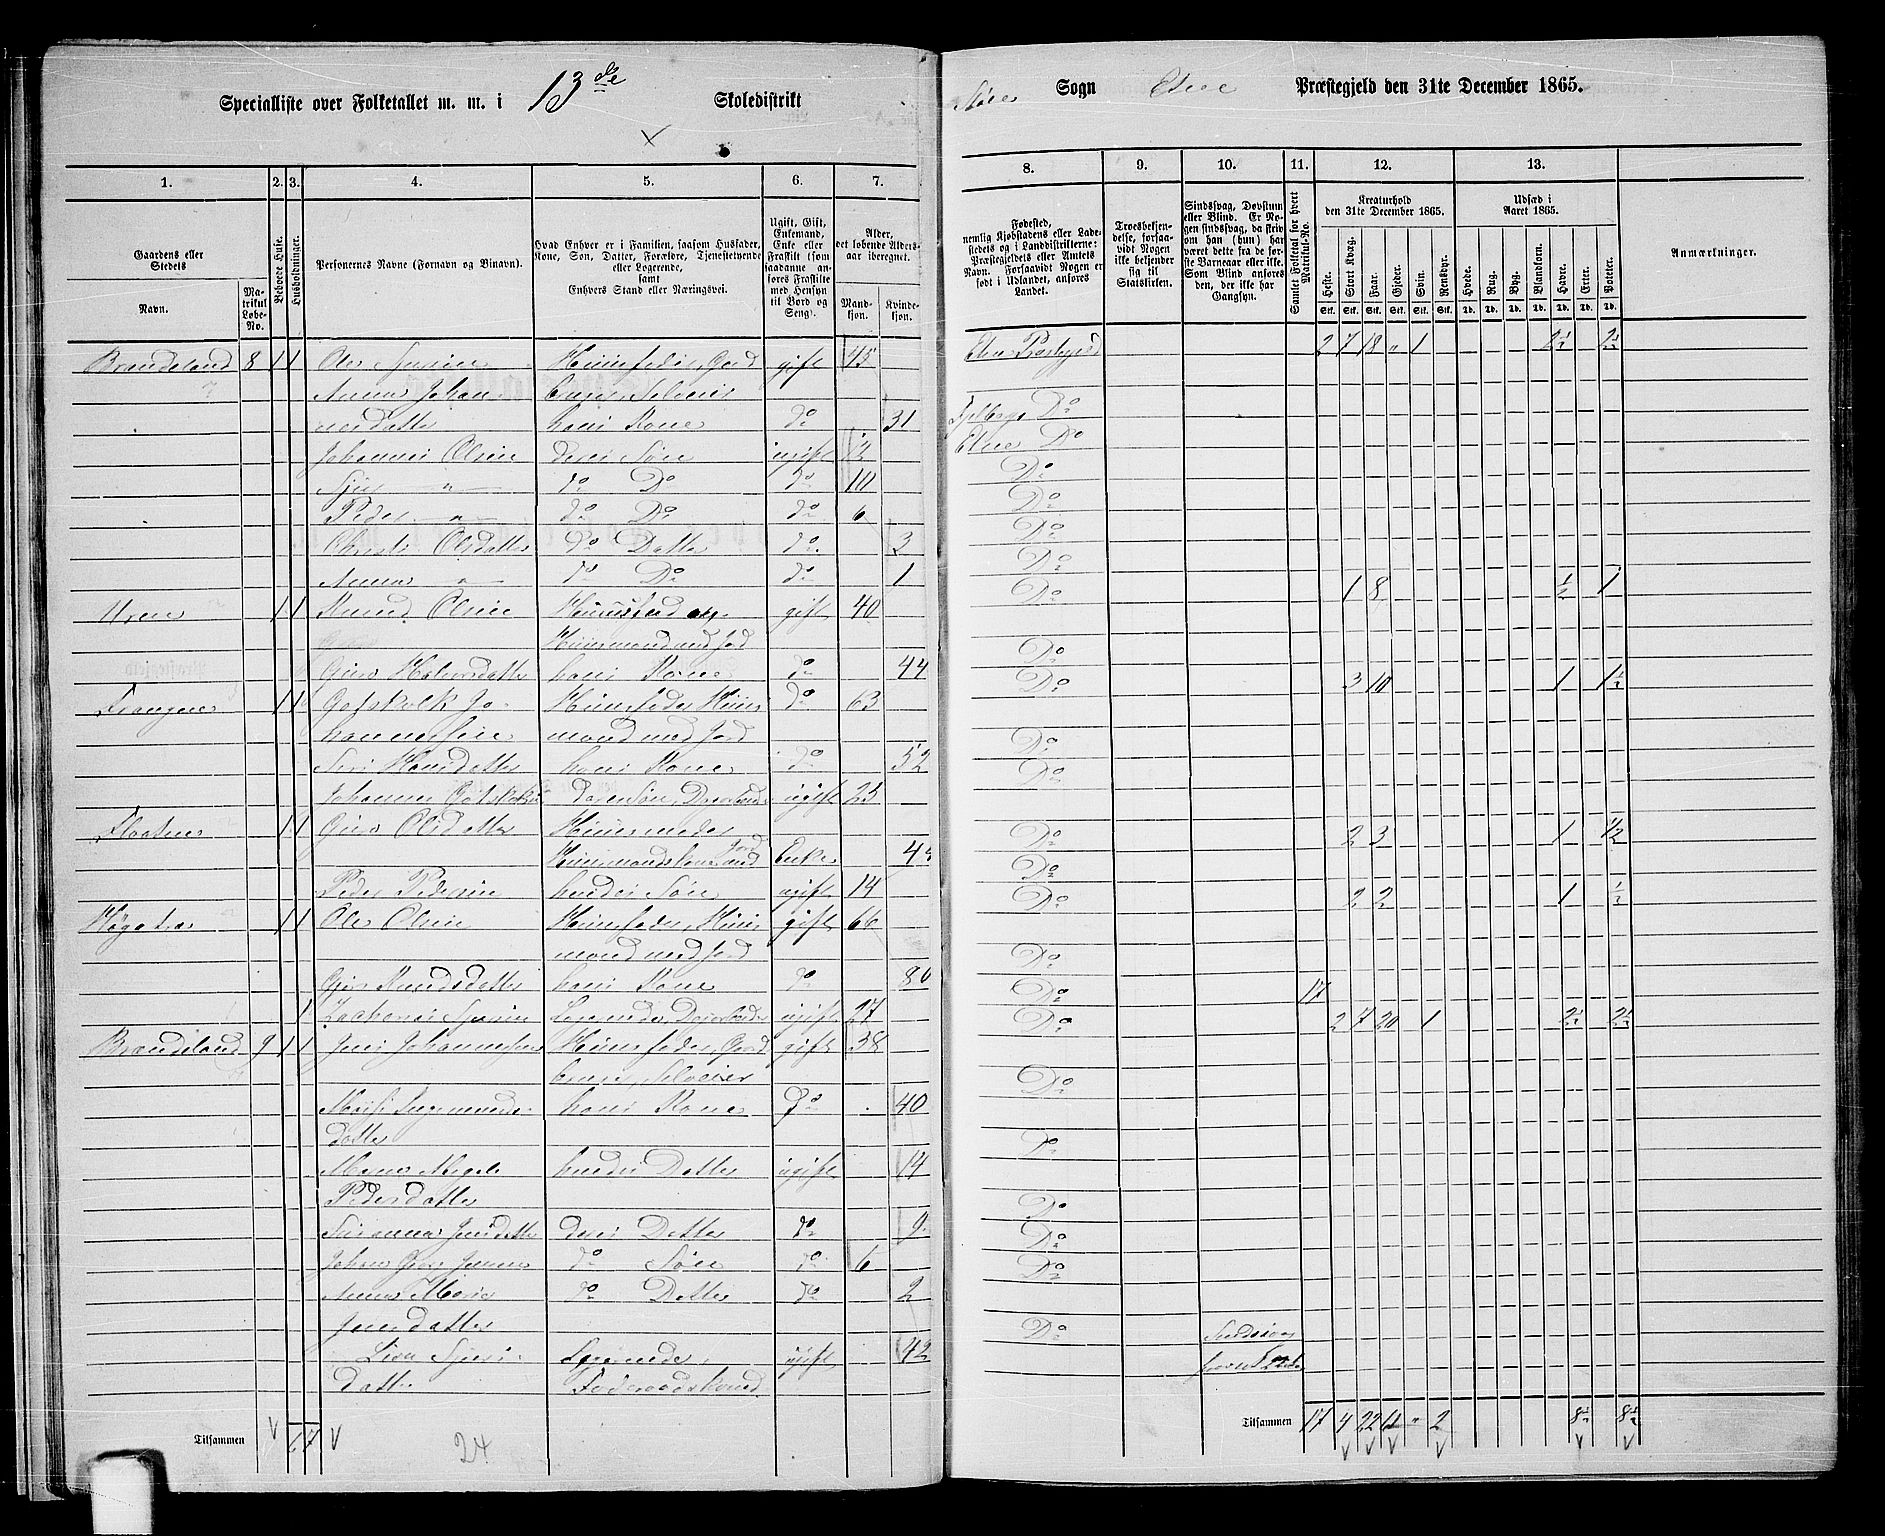 Specialliste over Folketallet m. m. i 13de Skoledistrikt
Støle Sogn Etne Præstegjeld den 31te December 1865.
1. 2. 3. 4. 5. 6. 7.
8. 9. 10. 11. 12. 13.
Gaardens eller Stedets
Navn.
Matrikul Løbe-No.
Beboede Huse.
Husholdninger.
Personernes Navne (Fornavn og Binavn).
Hvad Enhver er i Familien, saasom Husfader, Kone, Søn, Datter, Forældre, Tjenestetyende eller Logerende,
samt
Enhvers Stand eller Næringsvei.
Ugift, Gift, Enkemand, Enke eller Fraskilt (som saadanne anføres Fraskilte med Hensyn til Bord og Seng).
Alder, det løbende Alders-aar iberegnet.
Mand-kjøn. Kvinde-kjøn.
Fødested, nemlig Kjøbstadens eller Ladestedets og i Landdistrikterne: Præstegjeldets eller Amtets Navn. Forsaavidt Nogen er født i Udlandet, anføres Landet.
Troesbekjendelse, forsaavidt Nogen ikke bekjender sig til Statskirken.
Sindssvag, Døvstum eller Blind. Er Nogen sindssvag, da skrives om han (hun) har været dette fra de første Barneaar eller ikke. Som Blind anføres den, der ikke har Gangsyn.
Samlet Folketal for hvert Matrikul-No.
Kreaturhold den 31te December 1865.
Heste. Stort Kvæg. Faar. Gjeder. Svin. Rensdyr.
Udsæd i Aaret 1865.
Hvede. Rug. Byg. Blandkorn. Havre. Erter. Poteter.
Anmærkninger.
Brandeland 8 1 1 Ole Sjursen Huusfader, Gaard gift 45 Etne Præstegjeld 2 7 18 " 1 2½ 2½
Anna Johan bruger, Selveier
nesdatter hans Kone do 31 Fjelberg Do
Johannes Olsen deres Søn ugift 12 Etne Do
Sjur " do Do do 10 Do
Peder " do Do do 6 Do
Christi Olsdatter do Datter do 3 Do
Anna " do Do do 1 Do
Uren 1 1 Knud Olsen Huusfader gift 40 Do 1 8 ½ 1
Huusmand med Jord
Guro Halvorsdatter hans Kone do 44 Do
Trangene 1 1 Gotskalk Jo- Huusfader Huus do 63 Do 3 10 1 1½
hannessen mand med Jord
Siri Hansdatter hans Kone do 52 Do
Johannes Gotskalks deres Søn, Dagarbeider ugift 25 Do
Flaatene 1 1 Guro Olsdatter Huusmoder
Huusmandskone med Jord Enke 44 Do 2 3 1 ½
Peder Pedersen hendes Søn ugift 14 Do
Høgatræ 1 1 Ole Olsen Huusfader, Huus gift 66 Do 2 2 1 ½
mand med Jord
Guro Knudsdatter hans Kone do 80 Do
1 Zacharias Sjursen Logerende, Dagarbeider ugift 27 Do 17
Brandeland 9 1 1 Jens Johannessen Huusfader, Gaard gift 38 Do 2 7 20 1 2½ 2½
bruger, Selveier
Marte Ingemunds- hans Kone Do 40 Do
datter
Maren hendes Datter ugift 14 Do
Pedersdatter
Susanna Jensdatter deres Datter do 9 Do
Johan Jensen do Søn do 6 Do
Anna Marie do Datter do 2 Do
Jensdatter
Lisa Sjurs- Logerende, ugift 42 Do Sindssvag
datter Foderaadskone
Tilsammen 6 7 24
Tilsammen 17 4 22 61 " 2 8½ 8½